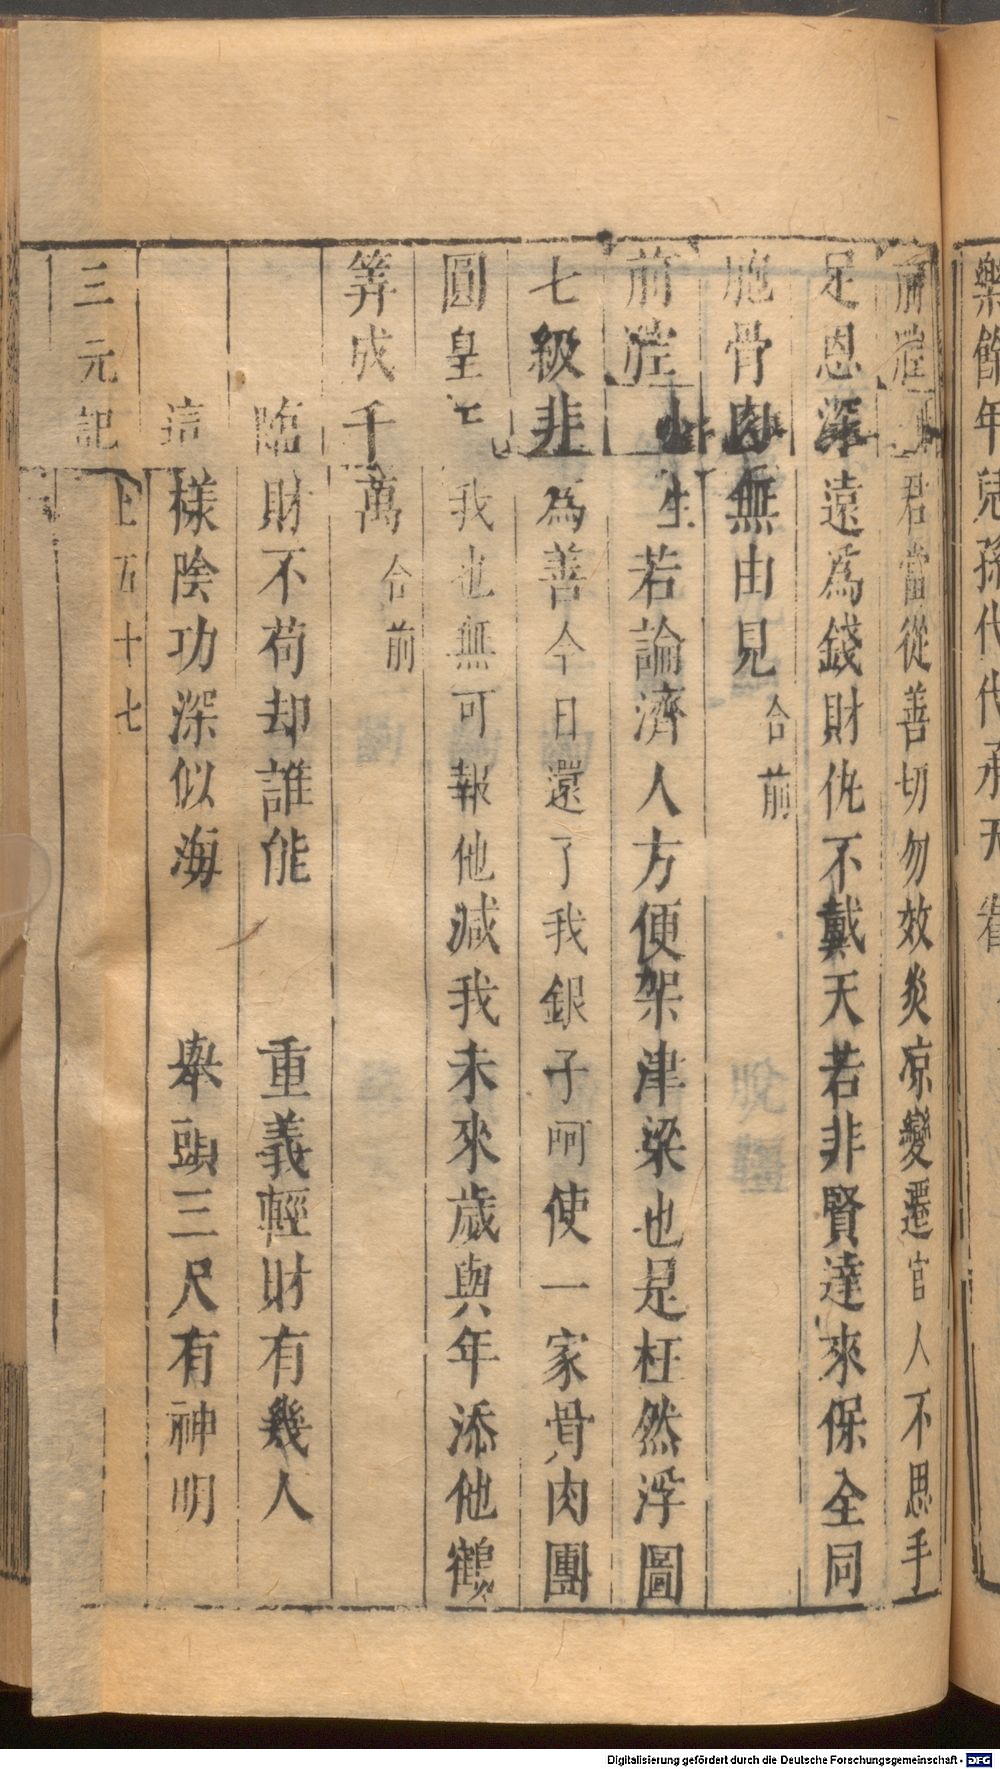 樂餘年兒孫代代承天眷
前腔 君當從善切勿效炎凉變遷官人不思手
足恩深遠為錢財仇不戴天若非賢達來保全同
胞骨肉無由見 合前
前腔 生 若論濟人方便架津梁也是枉然浮圖
七級非為善今日還了我銀子呵使一家骨肉團
圓皇七我也無可報他減我未來歲與年添他鶴
筭成千萬 合前
臨財不苟却誰能 重義輕財有幾人
這樣陰功深似海 舉頭三尺有神明
三元記 上 五十七
Digitalisierung gefördert durch die Deutsche Forschungsgemeinschaft - DFG